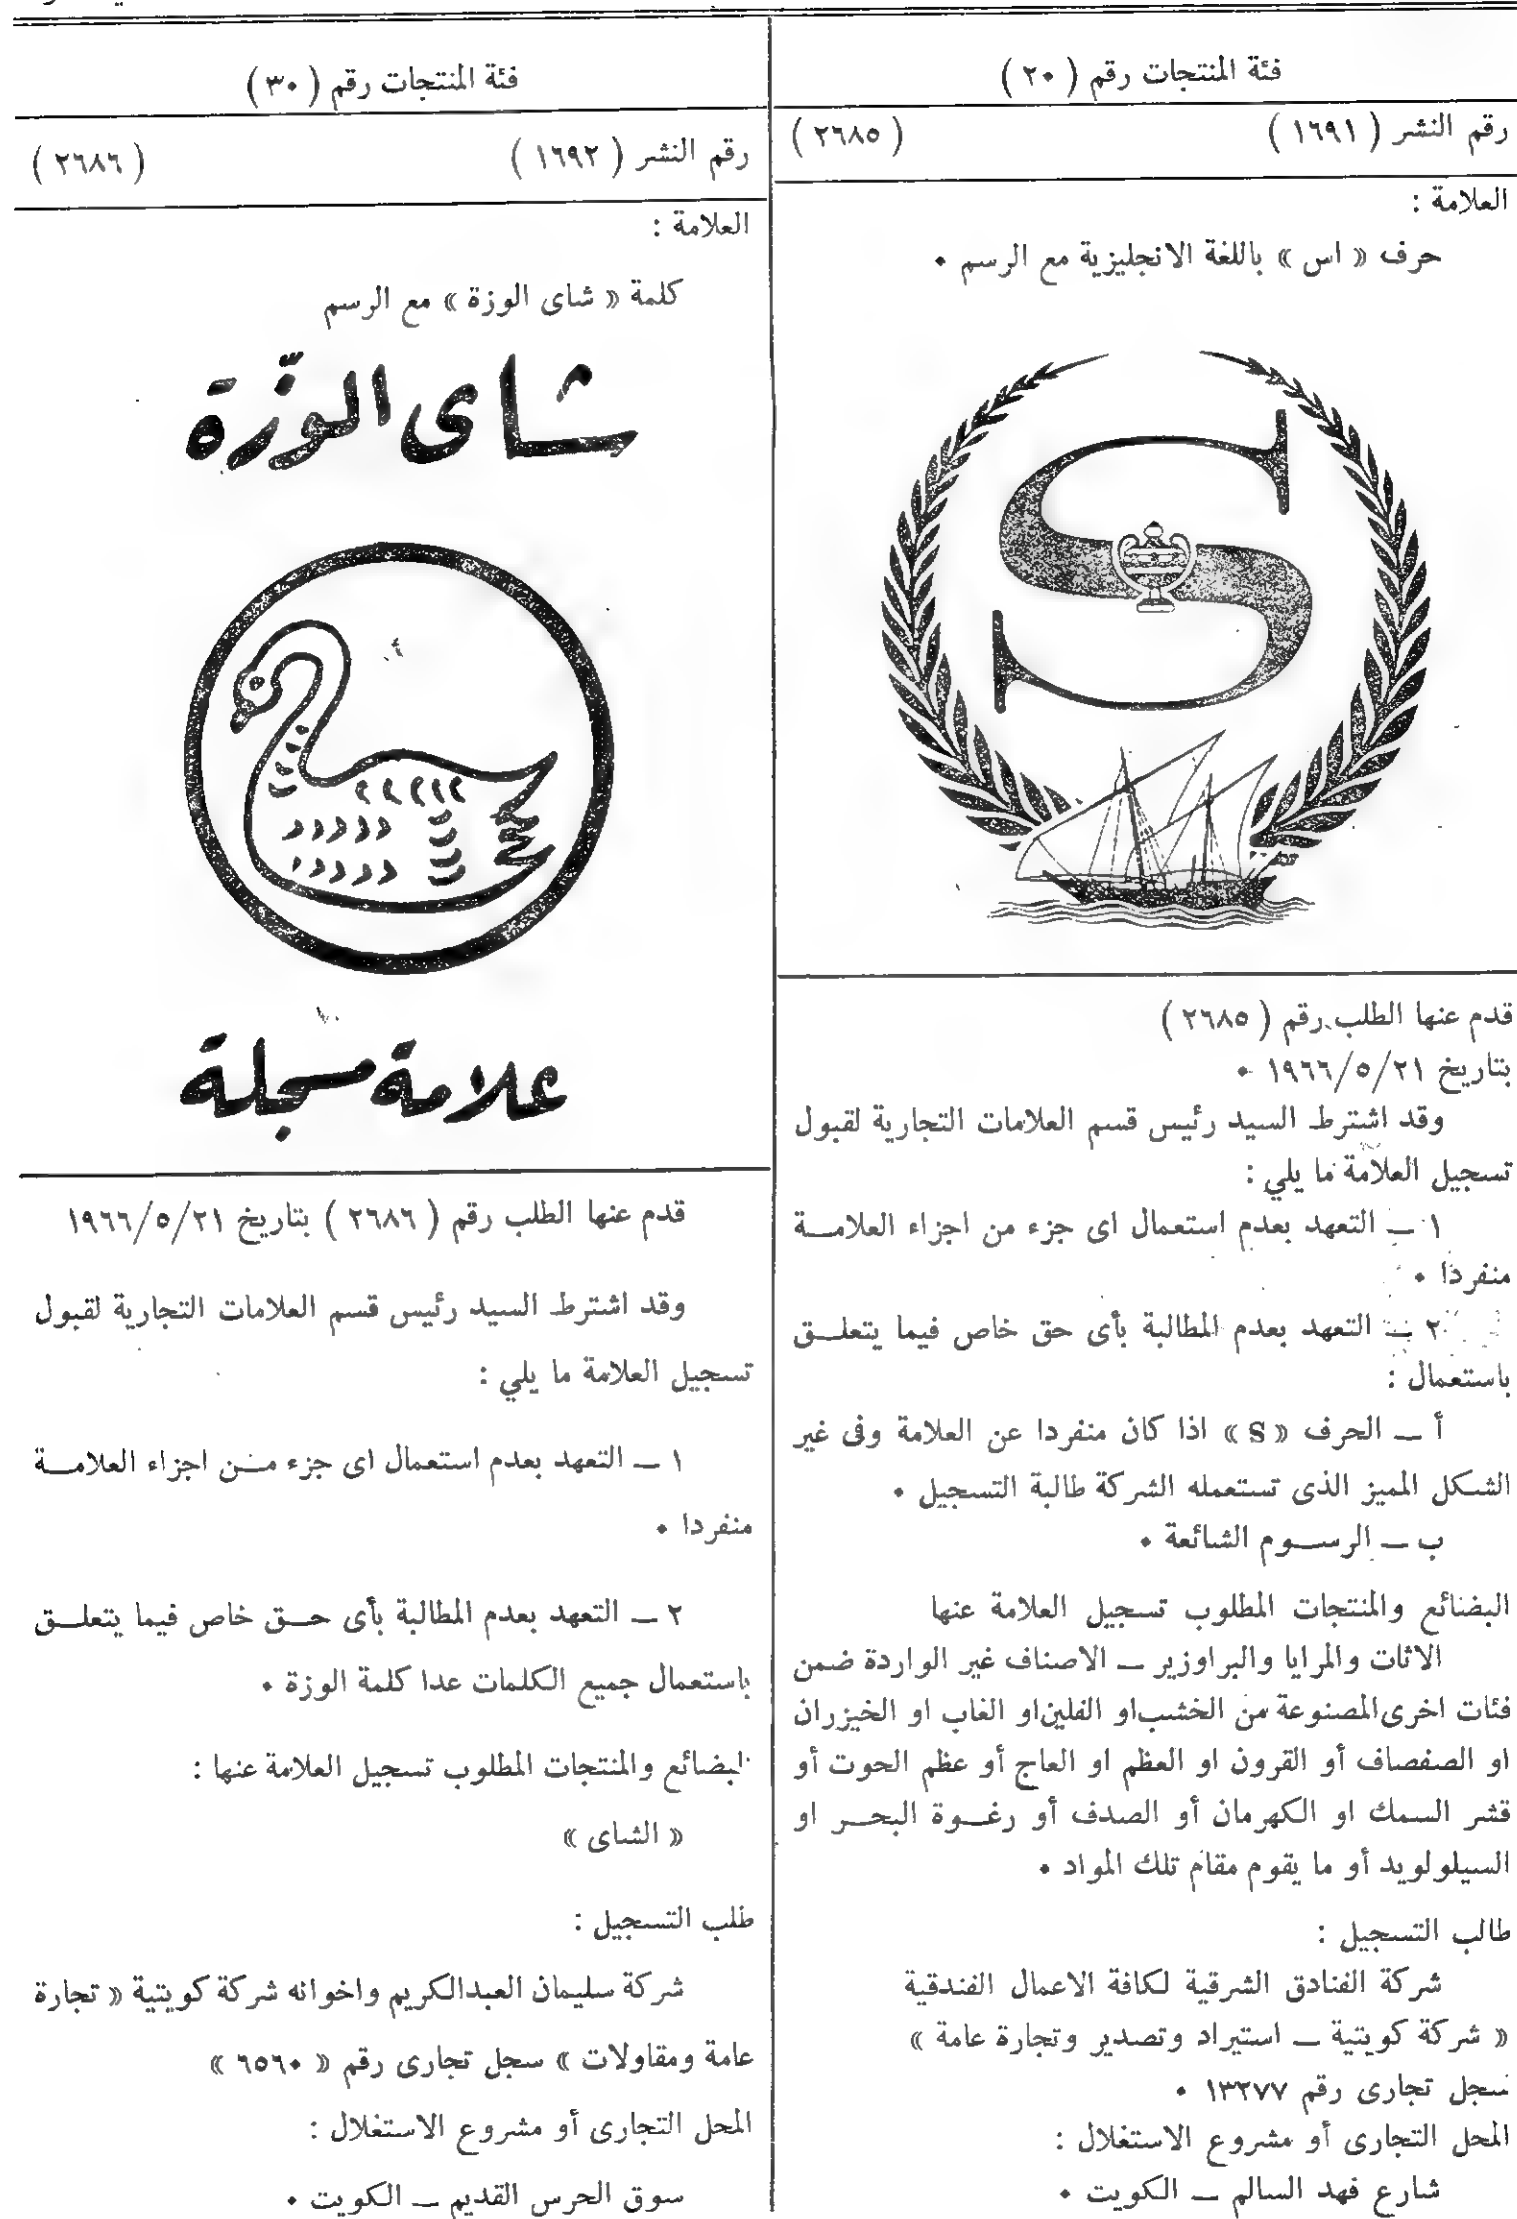 فئة المنتجات رقم ( ٢٠ )
رقم النشر ( ١٦٩١ ) ( ٢٦٨٥ )
العلامة :
حرف « اس » باللغة الانجليزية مع الرسم ٠
S
قدم عنها الطلب رقم ( ٢٦٨٥ )
بتاريخ ١٩٦٦/٥/٢١ ٠
وقد اشترط السيد رئيس قسم العلامات التجارية لقبول
تسجيل العلامة ما يلي :
١ ــ التعهد بعدم استعمال اى جزء من اجزاء العلامــة
منفردا ٠
٢ ــ التعهد بعدم المطالبة بأى حق خاص فيما يتعلــق
باستعمال :
أ ــ الحرف « S » اذا كان منفردا عن العلامة وفى غير
الشكل المميز الذى تستعمله الشركة طالبة التسجيل ٠
ب ــ الرســوم الشائعة ٠
البضائع والمنتجات المطلوب تسجيل العلامة عنها
الاثاث والمرايا والبراوزير ــ الاصناف غير الواردة ضمن
فئات اخرى المصنوعة من الخشب او الفلين او الغاب او الخيزران
او الصفصاف أو القرون او العظم او العاج أو عظم الحوت أو
قشر السمك او الكهرمان أو الصدف أو رغــوة البحــر او
السيلولويد أو ما يقوم مقام تلك المواد ٠
طالب التسجيل :
شركة الفنادق الشرقية لكافة الاعمال الفندقية
« شركة كويتية ــ استيراد وتصدير وتجارة عامة »
سجل تجارى رقم ١٣٢٧٧ ٠
المحل التجارى أو مشروع الاستغلال :
شارع فهد السالم ــ الكويت ٠
فئة المنتجات رقم ( ٣٠ )
رقم النشر ( ١٦٩٢ ) ( ٢٦٨٦ )
العلامة :
كلمة « شاى الوزة » مع الرسم
شاى الوزّة
علامة مسجلة
قدم عنها الطلب رقم ( ٢٦٨٦ ) بتاريخ ١٩٦٦/٥/٢١
وقد اشترط السيد رئيس قسم العلامات التجارية لقبول
تسجيل العلامة ما يلي :
١ ــ التعهد بعدم استعمال اى جزء مــن اجزاء العلامــة
منفردا ٠
٢ ــ التعهد بعدم المطالبة بأى حــق خاص فيما يتعلــق
باستعمال جميع الكلمات عدا كلمة الوزة ٠
البضائع والمنتجات المطلوب تسجيل العلامة عنها :
« الشاى »
طلب التسجيل :
شركة سليمان العبدالكريم واخوانه شركة كويتية « تجارة
عامة ومقاولات » سجل تجارى رقم « ٦٥٦٠ »
المحل التجارى أو مشروع الاستغلال :
سوق الحرس القديم ــ الكويت ٠